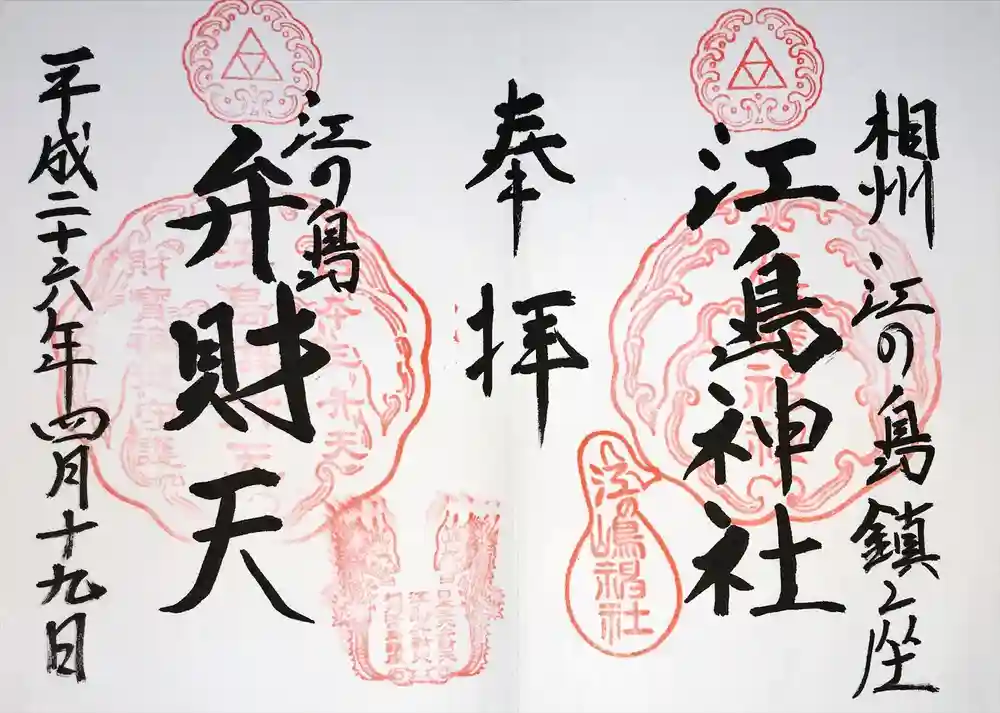 相州 江の島鎮之座
江島神社
奉拝
江の島
弁財天
平成二十六年四月十九日
江の嶋神社